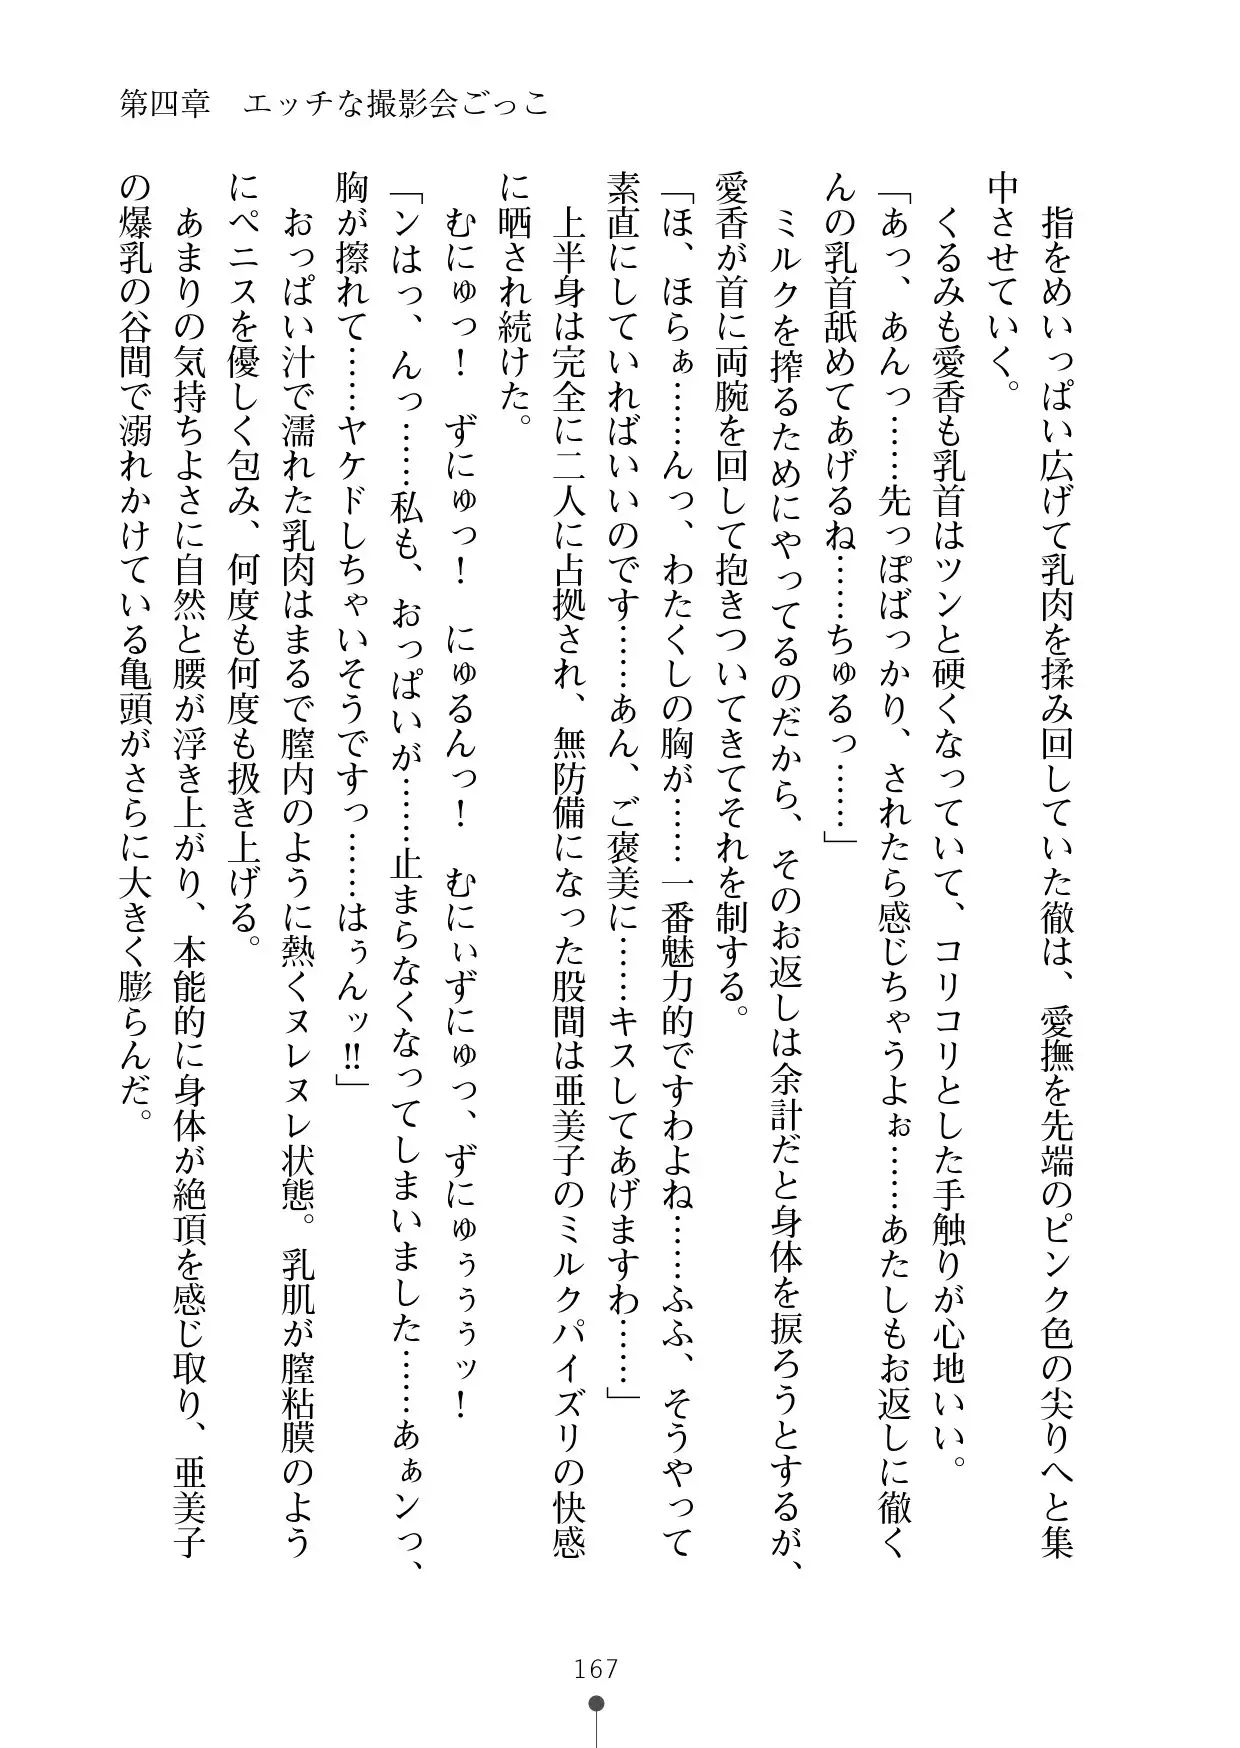 第四章　エッチな撮影会ごっこ
　指をめいっぱい広げて乳肉を揉み回していた徹は、愛撫を先端のピンク色の尖りへと集
中させていく。
　くるみも愛香も乳首はツンと硬くなっていて、コリコリとした手触りが心地いい。
「あっ、あんっ……先っぽばっかり、されたら感じちゃうよぉ……あたしもお返しに徹く
んの乳首舐めてあげるね……ちゅるっ……」
　ミルクを搾るためにやってるのだから、そのお返しは余計だと身体を捩ろうとするが、
愛香が首に両腕を回して抱きついてきてそれを制する。
「ほ、ほらぁ……んっ、わたくしの胸が……一番魅力的ですわよね……ふふ、そうやって
素直にしていればいいのです……あん、ご褒美に……キスしてあげますわ……」
　上半身は完全に二人に占拠され、無防備になった股間は亜美子のミルクパイズリの快感
に晒され続けた。
　むにゅっ！　ずにゅっ！　にゅるんっ！　むにぃずにゅっ、ずにゅぅぅぅッ！
「ンはっ、んっ……私も、おっぱいが……止まらなくなってしまいました……あぁンっ、
胸が擦れて……ヤケドしちゃいそうですっ……はぅんッ‼」
　おっぱい汁で濡れた乳肉はまるで膣内のように熱くヌレヌレ状態。乳肌が膣粘膜のよう
にペニスを優しく包み、何度も何度も扱き上げる。
　あまりの気持ちよさに自然と腰が浮き上がり、本能的に身体が絶頂を感じ取り、亜美子
の爆乳の谷間で溺れかけている亀頭がさらに大きく膨らんだ。
167